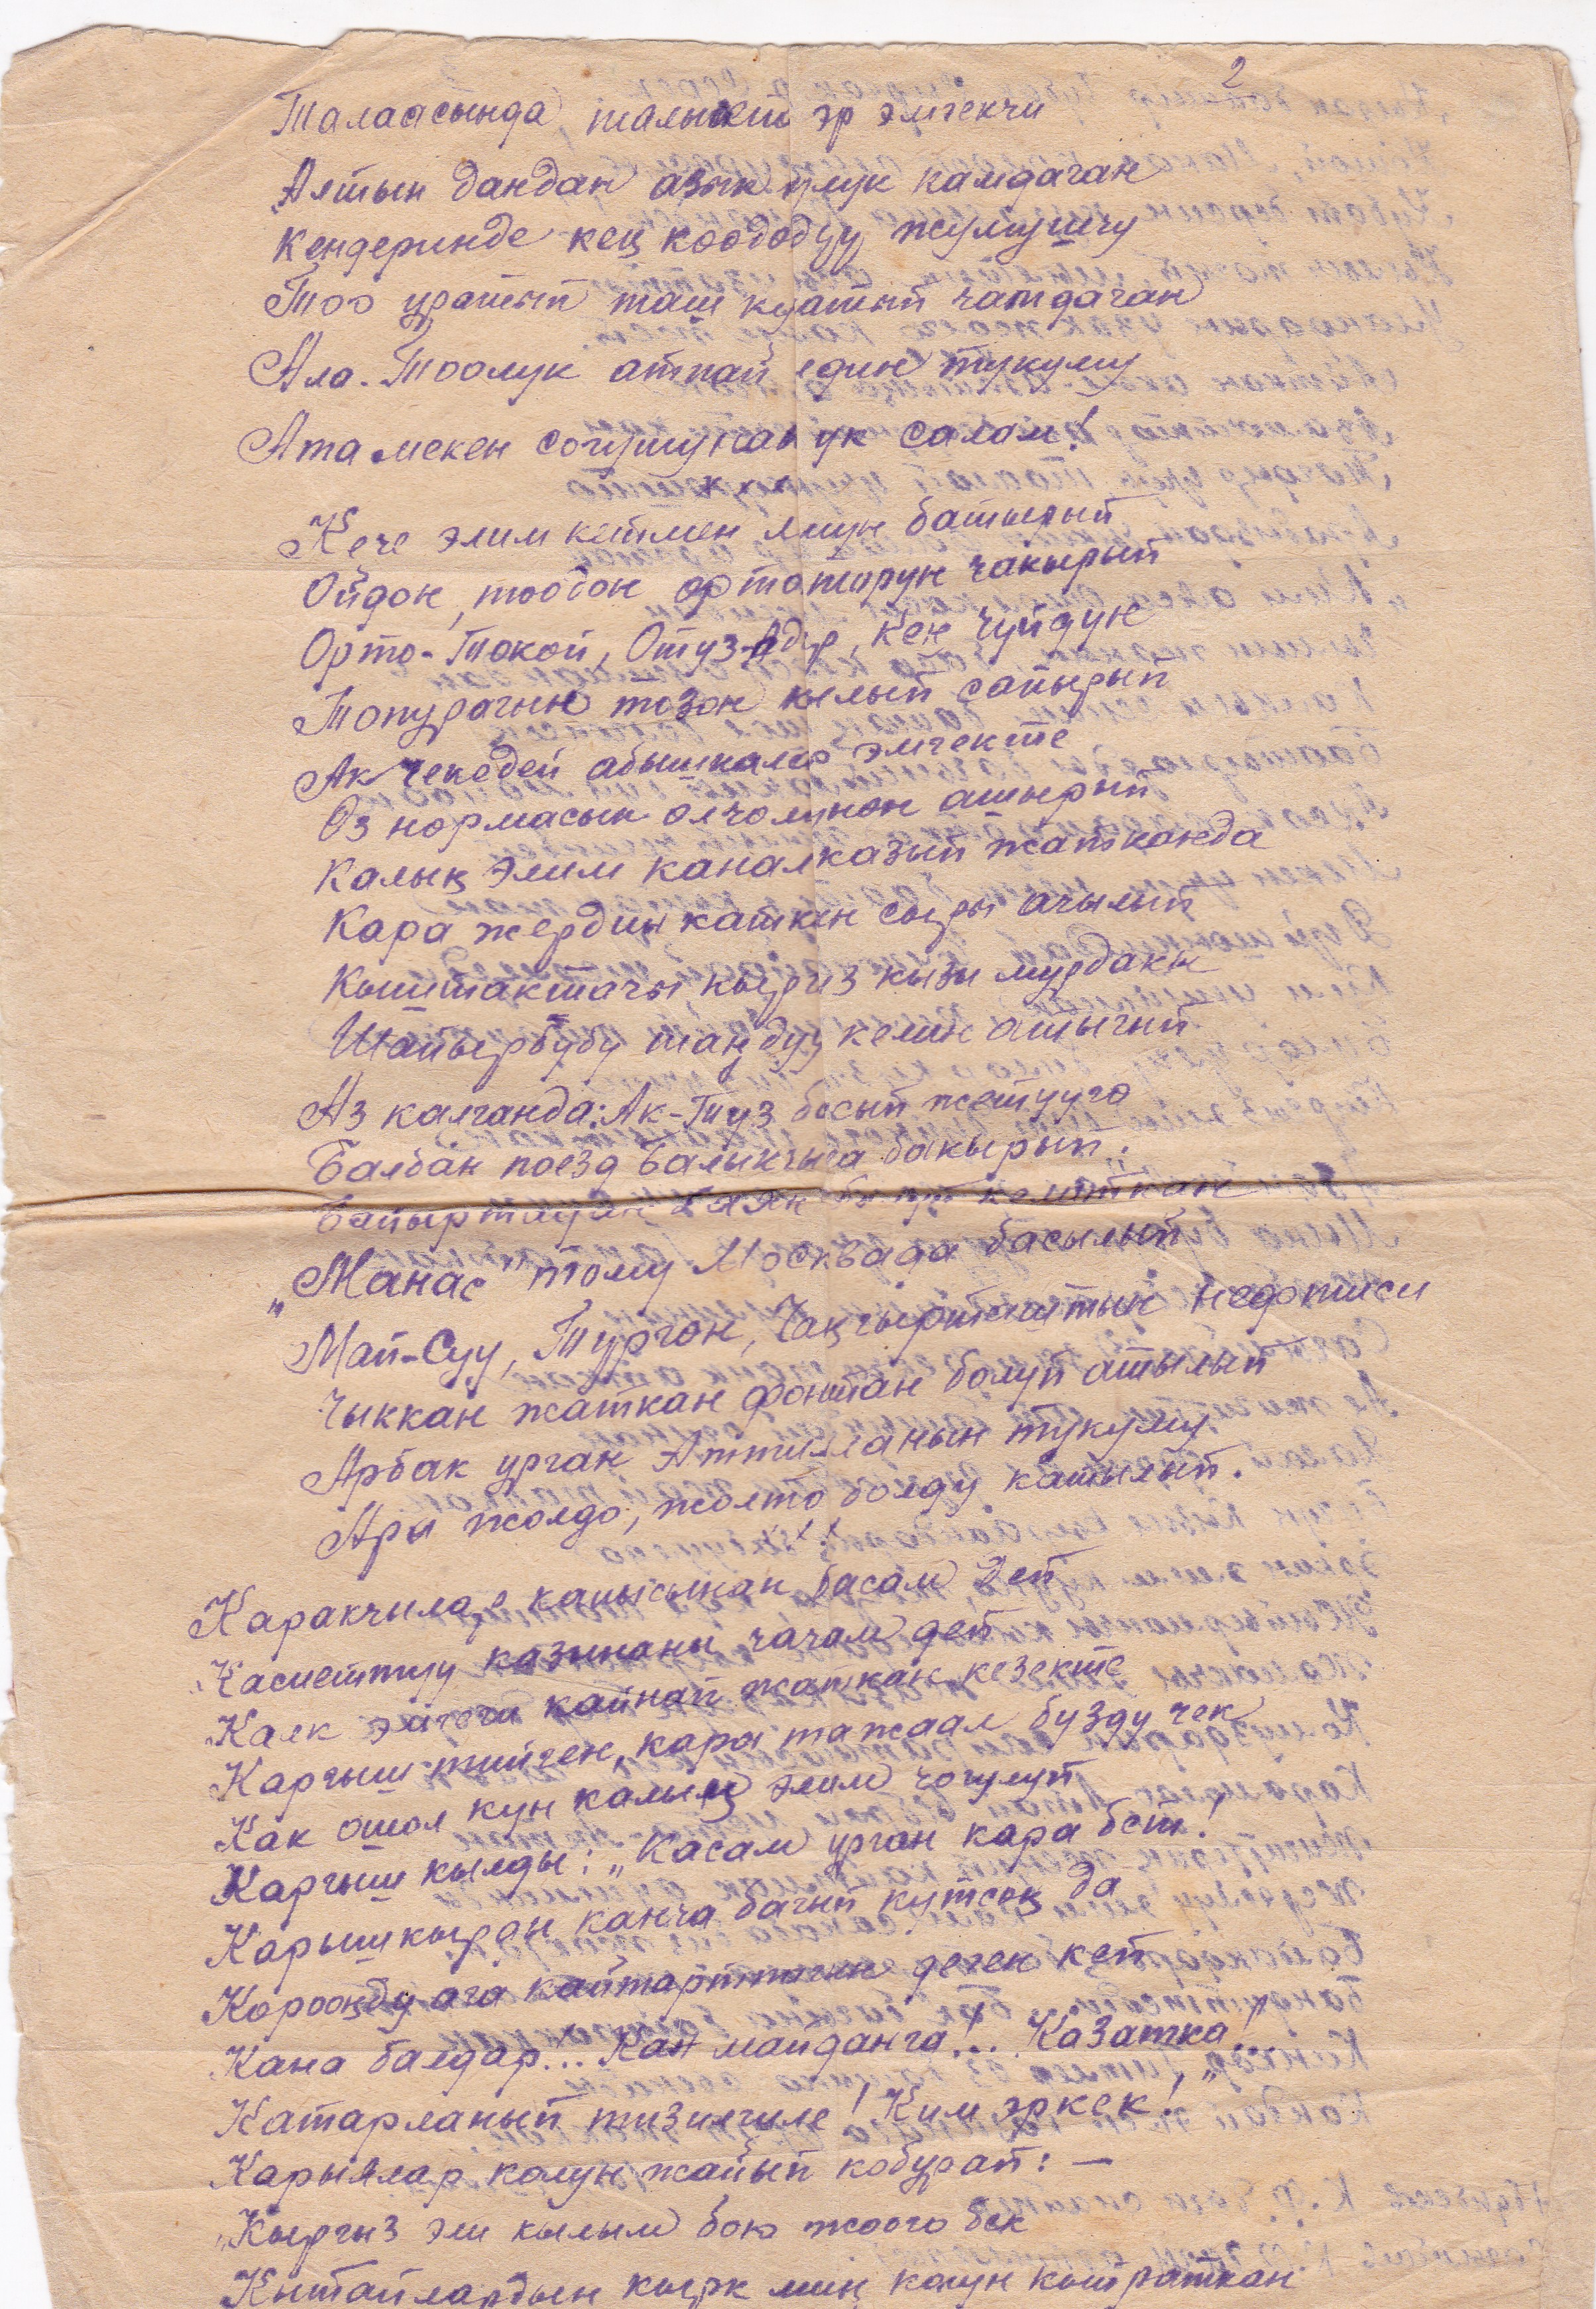 2
Талаасында талыкпай эр эмгекчи
Алтын дандан азык түлүк камдаган
Кендеринде кең көөдөдүү жумушчу
Тоо уратып таш кыратып чамдаган
Ала-Тоолук атпай един тукуму
Ата мекен согушунан ук салам!
х х х
Кече элим кетмен үнүн батырып
Ойдон, тоодон ортотоорун чакырып
Орто-Токой, Отуз-Адыр, Кең Чүйдүн
Топурагын тозон кылып сапырып
Ак чекедей абышкалар эмгекте
Өз нормасын өлчөмүнөн ашырып
Калың элим канал казып жатканда
Кара жердин каткан сыры ачылып
Кыштактагы кыргыз кызы мурдакы
Шайырбүбү таңдуу келин ашыгып
Аз калганда: Ак-Туз басып жетүүгө
Балбан поезд Балыкчыга бакырып.
Байыртадан баян болуп келаткан
„Манас" тому Москвада басылып
Май-Суу, Тургөн, Чаңгырташтын нефтиси
Чыккан жаткан фонтан болуп атылып
Арбак урган Аттилланын тукуму
Ара жолдо, жолто болду катылып.
х х х
Каракчылар капысынан басам деп
Касиеттүү казынаны чачам деп
Калк эмгеги кайнап жаткан кезекте
Каргыш тийген, кара тажаал бузду чек
Как ошол күн калың элим чогулуп
Каргыш кылды: „Касам урган кара бет!
Карышкырды канча багып күтсөң да
Короонду ага кайтартпагын деген кеп
Кана балдар!.. Кан майданга!... Казатка!..
Катарланып тизилгиле! Ким эркек!"
Карыялар колун жайып кобурап: –
„Кыргыз эли кылым бою жоого бек
Кытайлардын кырк миң колун кыйраткан